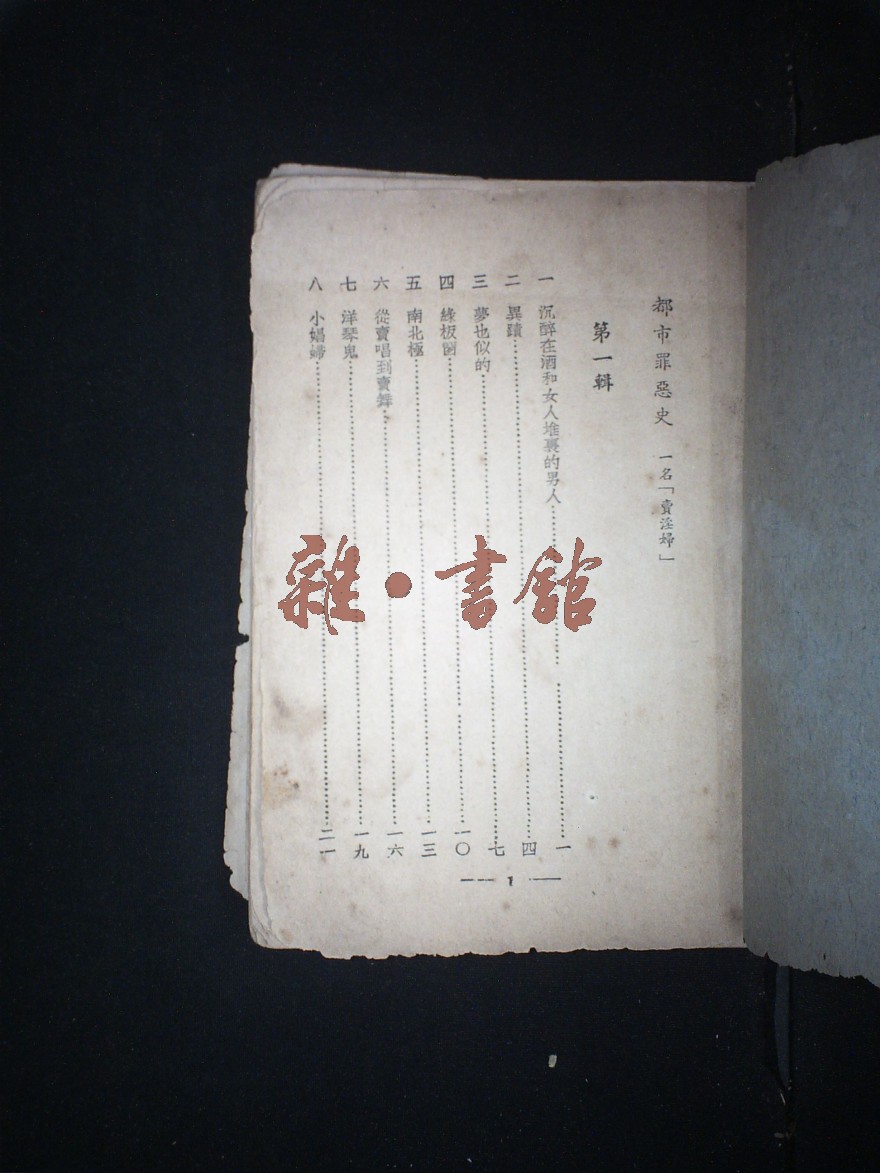 都市罪惡史 一名「賣淫婦」
第一輯
一 沉醉在酒和女人堆裏的男人 一
二 異蹟 四
三 夢也似的 七
四 綠板 一〇
五 南北極 一三
六 從賣唱到賣舞 一六
七 洋琴鬼 一九
八 小娼婦 二一
1
雜·書館